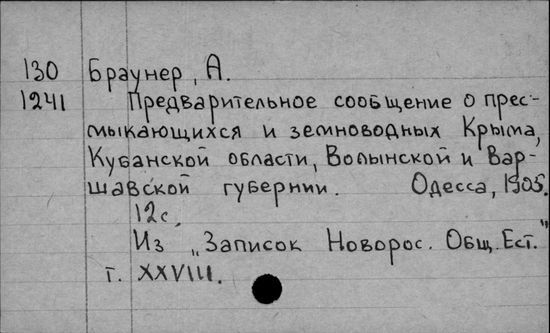 130 Браунер, А.
1241 Предварительное сообщение о прес-
мыкающихся и земноводных Крыма,
Кубанской области, Волынской и Вар-
шавской губернии. Одесса, 1905.
12с.
Из „Записок Новорос. Общ. Ест."
т. XXVIII.